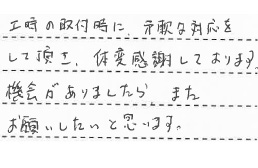 工時の取付時に、柔軟な対応を
して頂き、体変感謝しております。
機会がありましたら、また
お願いしたいと思います。